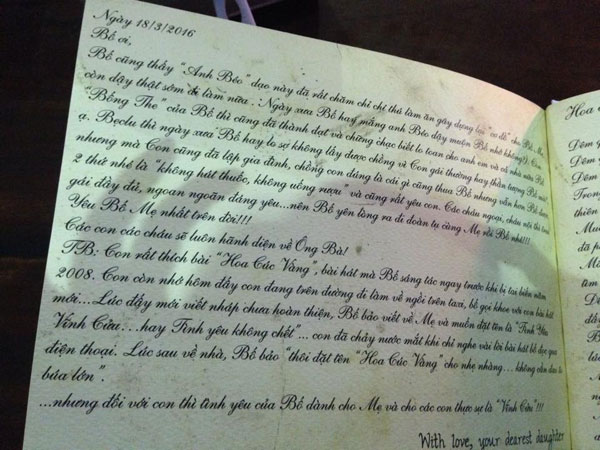 Ngày 18/3/2016
Bố ơi,
Bố cũng thấy "Anh Béo" dạo này đã rất chăm chỉ chí thú làm ăn gây dựng lại "cơ đồ" cho Bố Mẹ,
còn dậy thật sớm đi làm nữa. Ngày xưa Bố hay mắng anh Béo dậy muộn Bố nhớ không?). Còn
"Bống The" của Bố thì cũng đã thành đạt và chững chạc biết lo toan cho anh em và cả nhà nữa Bố
ạ. Beclu thì ngày xưa Bố hay lo sợ không lấy được chồng vì Con gái thường hay thần tượng Bố mình
nhưng mà Con cũng đã lập gia đình, chồng con đúng là cái gì cũng thua Bố nhưng vẫn hơn Bố được
2 thứ nhé là "không hút thuốc, không uống rượu" và cũng rất yêu con. Các cháu ngoại, cháu nội thì trai
gái đầy đủ, ngoan ngoãn đáng yêu...nên Bố yên lòng ra đi đoàn tụ cùng Mẹ rồi Bố nhé!!!
Yêu Bố Mẹ nhất trên đời!!!
Các con các cháu sẽ luôn hãnh diện về Ông Bà!
TB: Con rất thích bài "Hoa Cúc Vàng", bài hát mà Bố sáng tác ngay trước khi bị tai biến năm
2008. Con còn nhớ hôm đấy con đang trên đường đi làm về ngồi trên taxi, bố gọi khoe với con bài hát
mới...Lúc đấy mới viết nháp chưa hoàn thiện, Bố bảo viết về Mẹ và muốn đặt tên là "Tình Yêu
Vĩnh Cửu...hay Tình yêu không chết"... con đã chảy nước mắt khi chỉ nghe vài lời bài hát bố đọc qua
điện thoại. Lúc sau về nhà, Bố bảo "thôi đặt tên "Hoa Cúc Vàng" cho nhẹ nhàng... không cần đao to
búa lớn".
...nhưng đối với con thì tình yêu của Bố dành cho Mẹ và cho các con thực sự là "Vĩnh Cửu"!!!
With love, your dearest daughter
Hoa
Đêm
Đêm
Đêm
Trong
thiên
Muố
đã
Mà